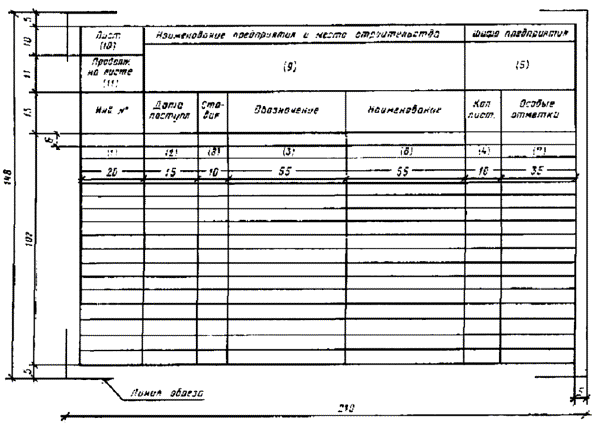 Лист Наименование предприятия и место строительства Шифр предприятия
(10)
Продолж.
на листе
(11) (9) (5)
Инв № Дата
поступл. Ста-
дия Обозначение Наименование Кол
лист. Особые
отметки
(1) (2) (8) (3) (6) (4) (7)
20 15 10 55 55 10 35
5
10
11
15
8
102
5
148
Линия обреза
5
210